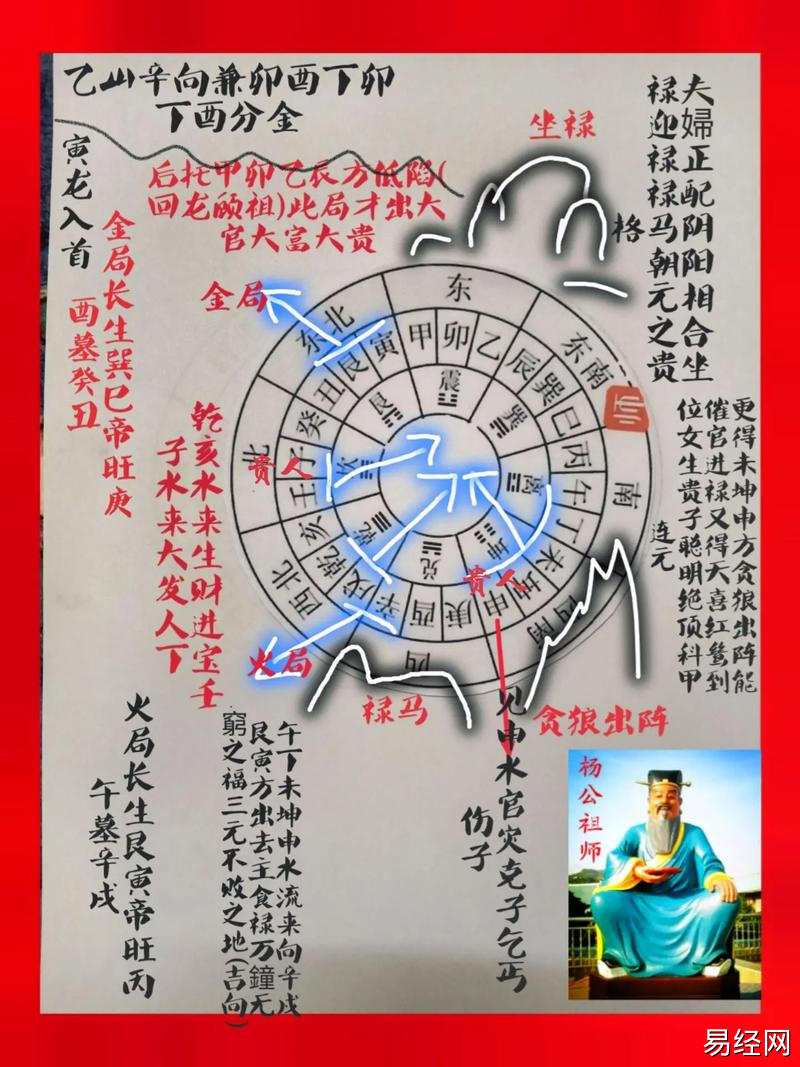 乙山辛向兼卯酉丁卯
丁酉分金
夫婦正配阴阳相合坐
禄迎禄禄马朝元之贵
格
坐禄
后托甲卯乙辰方低陷(
回龙顾祖)此局才出大
官大富大贵
寅龙入首
金局长生巽巳帝旺庚
酉墓癸丑
金局
更得未坤申方贪狼出阵能
催官进禄又得天喜红鸾到
位女生贵子聪明绝顶科甲
连元
乾亥水来生财进宝壬
子水来大发人丁
东
东南
南
西南
西
西北
北
东北
甲
卯
乙
辰
巽
巳
丙
午
丁
未
坤
申
庚
酉
辛
戌
乾
亥
壬
子
癸
丑
艮
寅
震
巽
离
坤
兑
乾
坎
艮
师
贵人
贵人
火局
禄马
贪狼出阵
见申水官灾克子乞丐
伤子
午丁未坤申水流来向辛戌
艮寅方出去主食禄万鐘无
窮之福三元不败之地(吉向)
火局长生艮寅帝旺丙
午墓辛戌
杨公祖师
易经网